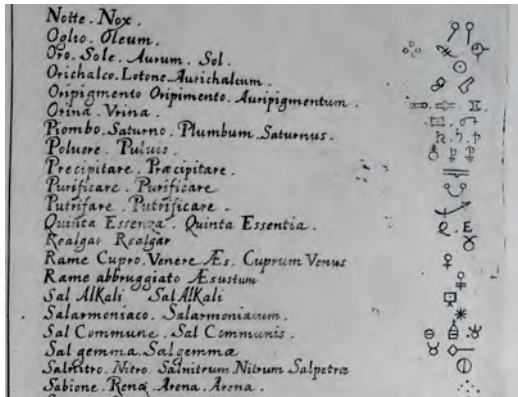 Notte . Nox .
Oglio . Oleum .
Oro . Sole . Aurum . Sol .
Orichalco . Lotone . Aurichalcum .
Oripigmento Oripimento . Auripigmentum .
Orina . Vrina .
Piombo . Saturno . Plumbum . Saturnus .
Poluere . Puluis .
Precipitare . Præcipitare .
Purificare . Purificare
Putrifare . Putrificare .
Quinta Essenza . Quinta Essentia .
Realgar Realgar
Rame Cupro . Venere Æs . Cuprum Venus
Rame abbruggiato Æsustum
Sal Alkali Sal Alkali
Salarmoniaco . Salarmoniacum .
Sal Commune . Sal Communis .
Sal gemma . Sal gemmæ
Salnitro . Nitro . Salnitrum . Nitrum Salpetræ
Sabione . Rena . Arena . Arena .